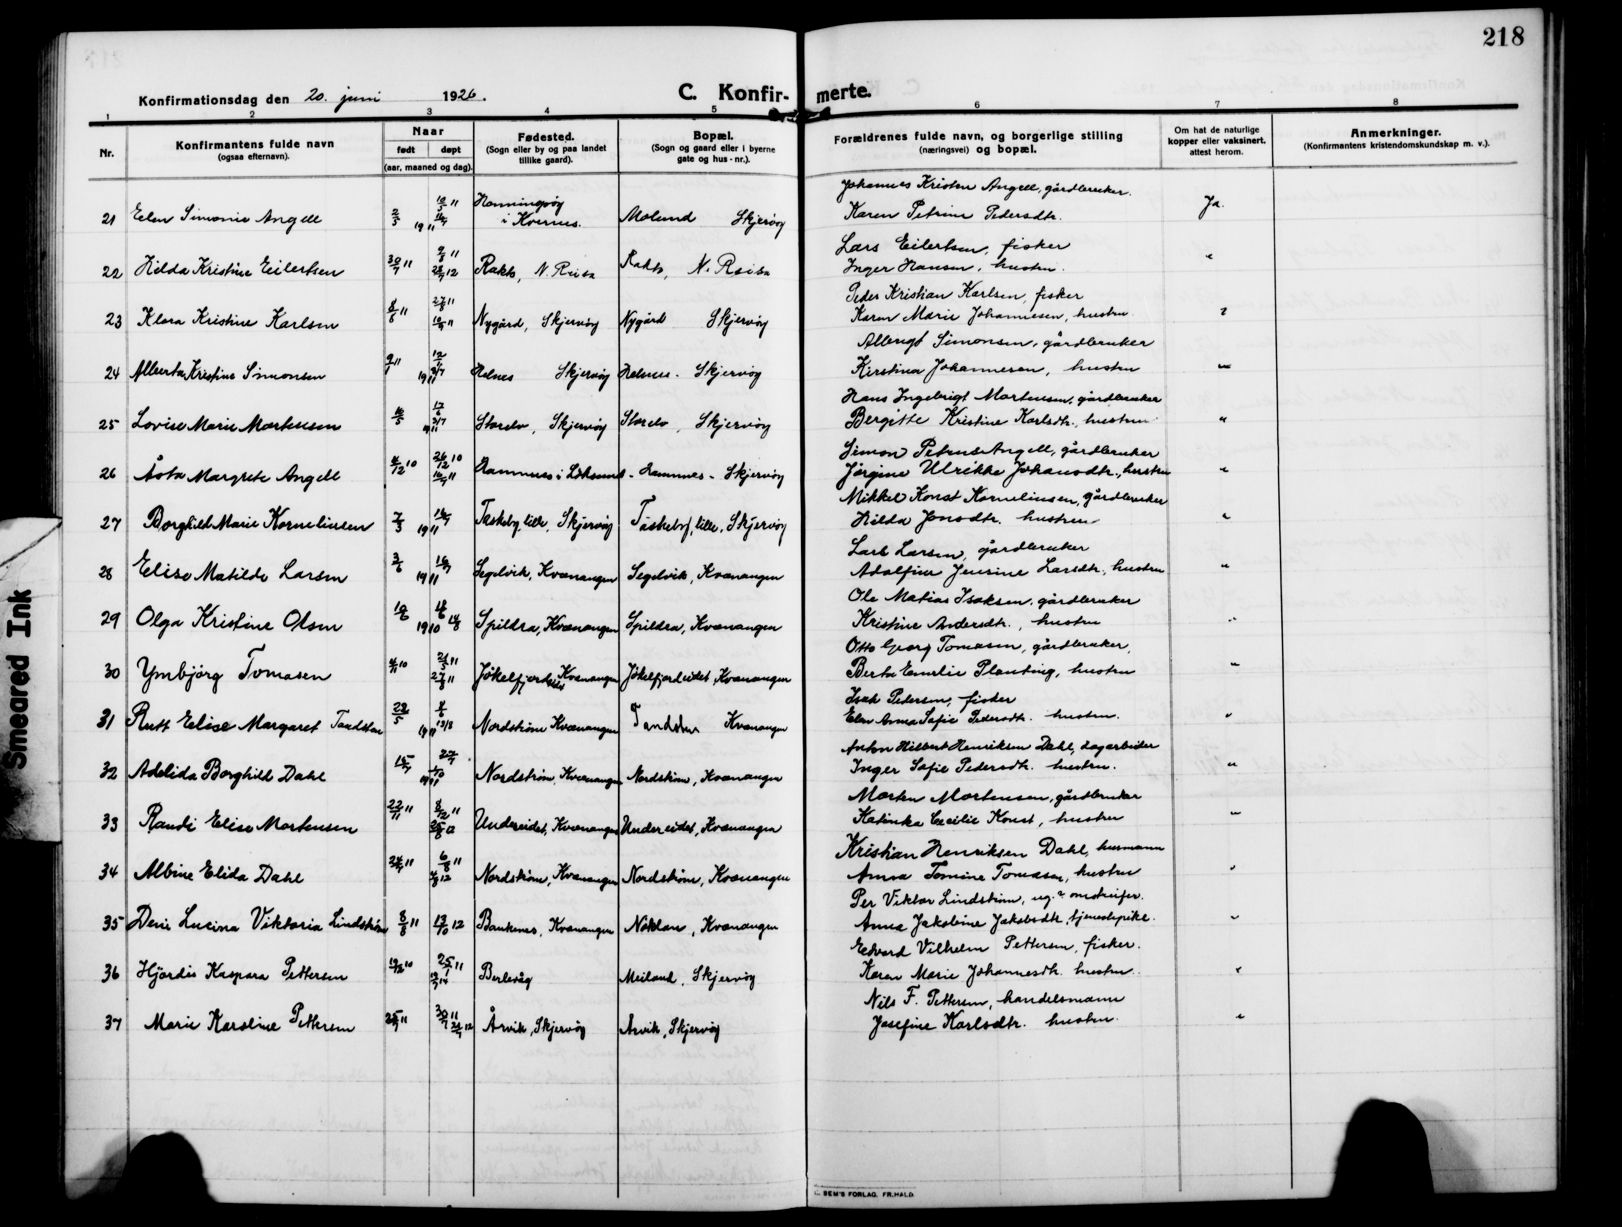 218
Konfirmationsdag den 20. juni 1926.
C. Konfirmerte.
1 2 3 4 5 6 7 8
Nr.
Konfirmantens fulde navn
(ogsaa efternavn).
Naar
født døpt
(aar, maaned og dag).
Fødested.
(Sogn eller by og paa landet
tillike gaard).
Bopæl.
(Sogn og gaard eller i byerne
gate og hus-nr.).
Forældrenes fulde navn, og borgerlige stilling
(næringsvei) og bopæl.
Om hat de naturlige
kopper eller vaksinert,
attest herom.
Anmerkninger.
(Konfirmantens kristendomskundskap m. v.).
Johannes Kristen Angell, gårdbruker.
21 Elen Simonie Angell 1911 Honningsvåg i Kvernes. Molund Skjervøy Karen Petrine Pedersdtr. Ja.
Lars Eilertsen, fisker
22 Hilda Kristine Eilertsen 30/7 11 Rakto, N. Reisa Rakto, N. Reisa Inger Hansen, hustru. "
Peder Kristian Karlsen, fisker
23 Klara Kristine Karlsen 8/6 11 Nygård, Skjervøy Nygård Skjervøy Karen Marie Johannesen, hustru.
Albrigt Simonsen, gårdbruker
24 Alberta Kristine Simonsen 9/1 11 Helnes Skjervøy Helnes - Skjervøy Kirstina Johannesen, hustru "
Hans Ingebrigt Mortensen, gårdbruker
25 Lovise Marie Mortensen 1911 Storelv, Skjervøy Storelv, Skjervøy Bergitte Kristine Karlsdtr., hustru "
Simon Petrus Angell, gårdbruker
26 Åsta Margrete Angell 4/12 10 26/12 10 Hamnnes i Löksund - Hamnnes - Skjervøy Jørgine Ulrikke Johansdtr., hustru "
Mikkel Konst Kornelinsen, gårdbruker
27 Borghild Marie Kornelinsen 7/3 1911 Taskeby, lille, Skjervøy Taskeby, lille, Skjervøy Hilda Jonsdtr. hustru "
Lars Larsen, gårdbruker
28 Elise Matilde Larsen 3/6 1911 Segelvik, Kvænangen Segelvik, Kvænangen Adolfine Jensine Larsdtr., hustru "
Ole Matias Isaksen, gårdbruker
29 Olga Kristine Olsen 1910 Spildra, Kvænangen Spildra, Kvænangen Kristine Andersdtr., hustru "
Otto Georg Tomasen, gårdbruker,
30 Ymbjørg Tomasen 4/11 10 27/8 11 Jøkelfjordeidet Kvænangen Jøkelfjordeidet, Kvænangen Berta Emelie Planting, hustru "
Isak Pedersen, fisker
31 Rutt Elise Margaret Tandstøm 23/5 1911 Nordstrøm Kvænangen Kvænangen Elen Anna Sofie Pedersdtr. hustru. "
Anton Hilbert Henriksen Dahl, dagarbeider
32 Adelida Borghild Dahl 1911 Nordstrøm, Kvænangen Nordstrøm, Kvænangen Inger Sofie Pedersdtr. hustru. "
Morten Mortensen, gårdbruker
33 Randi Elise Mortensen 22/11 11 8/12 11 25/8 12 Undereidet, Kvænangen Undereidet, Kvænangen Katinka Cecilie Konst, hustru "
Kristian Henriksen Dahl, husmann
34 Albine Elida Dahl 11 6/8 11 Nordstrøm, Kvænangen Nordstrøm, Kvænangen Anna Tomine Tomasen, hustru "
Per Viktor Lindstrøm, ug.
35 Deni Lucina Viktoria Lindstrøm 8/8 11 13/10 12 Baukenes, Kvænangen Kvænangen Anna Jakobine Jakobsdtr, tjenestepike. "
Edvard Vilhelm Pettersen, fisker.
36 Hjørdis Kaspara Pettersen 10 25/1 11 Berlevåg Meiland, Skjervøy Karen Marie Johannesdtr. hustru. "
Nils F. Pettersen, handelsmann
37 Marie Karoline Pettersen 11 Årvik, Skjervøy Årvik, Skjervøy Josefine Karlsdtr. hustru. "
SEM'S FORLAG. FR.HALD.
Smeared Ink